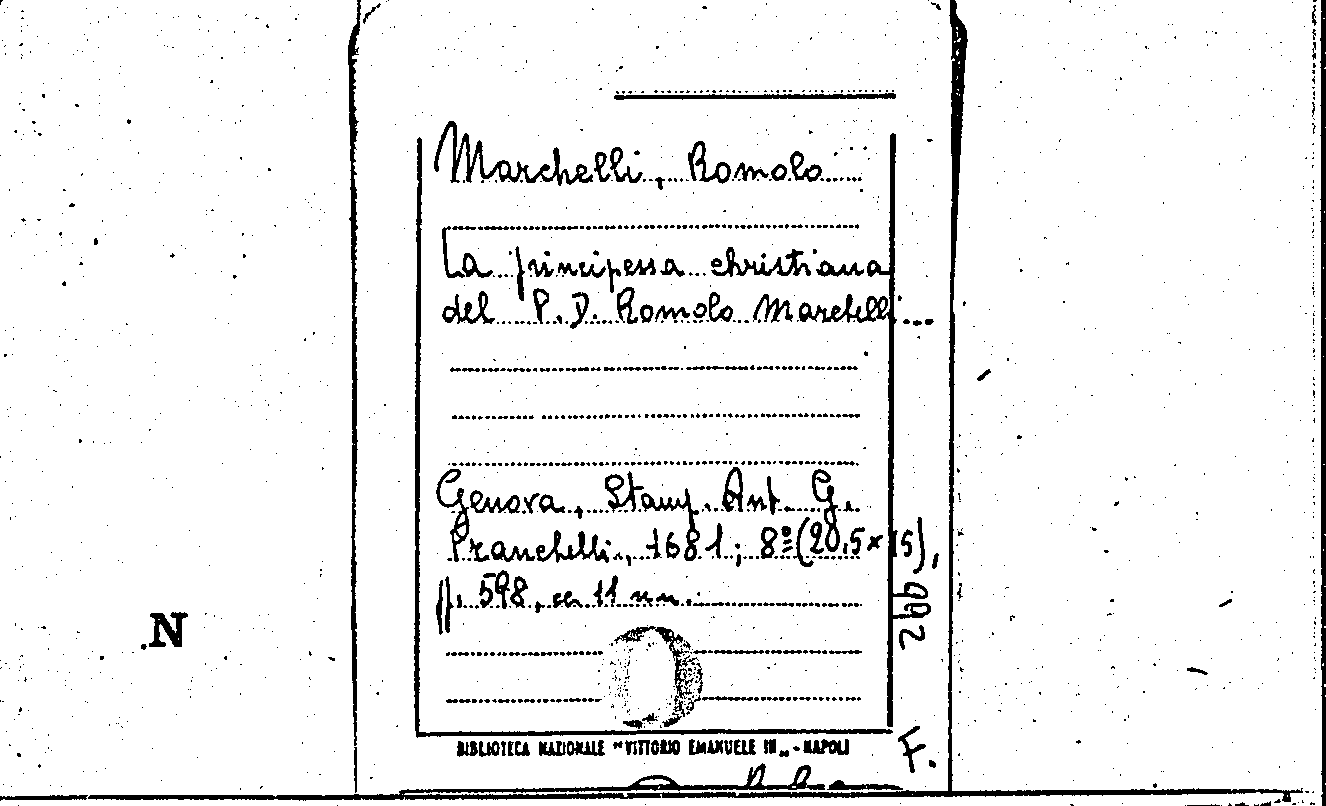 Marchelli, Romolo
La principessa christiana
del P. D. Romolo Marchelli...
Genova, Stamp. Ant. G.
Franchelli, 1681; 8º (20,5×15),
pp. 598, cc 11 nn.
992
F.
N
BIBLIOTECA NAZIONALE "VITTORIO EMANUELE III„ - NAPOLI